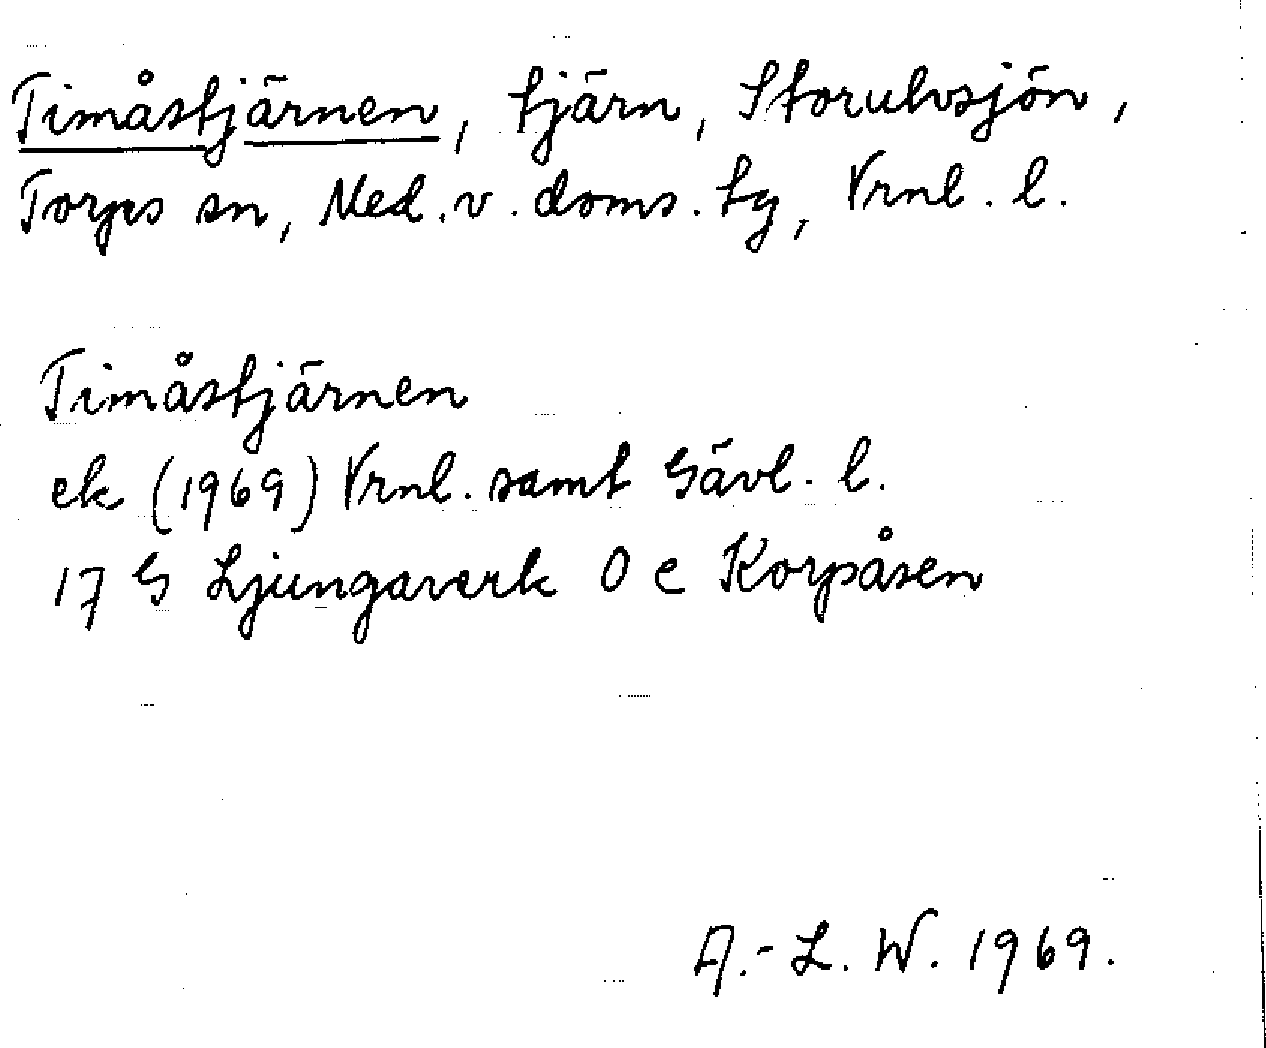 Timåstjärnen, tjärn, Storulvsjön,
Torps sn, Med. v. doms. tg, Vrnl. l.
Timåstjärnen
ek (1969) Vrnl. samt Gävl. l.
17 G Ljungaverk 0 e Korpåsen
A.-L. W. 1969.